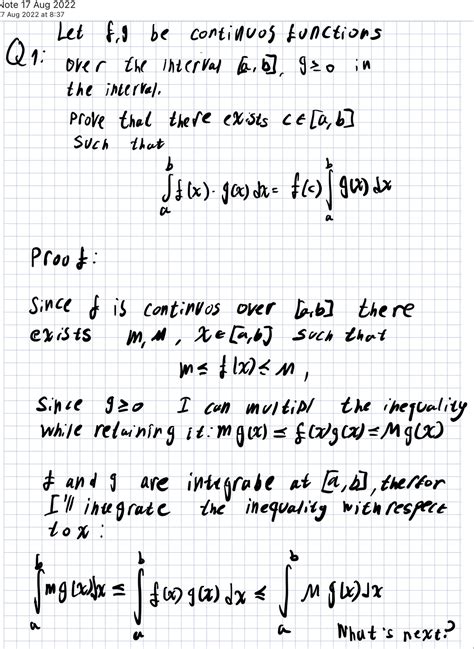 Note 17 Aug 2022
7 Aug 2022 at 8:37
Let f,g be continuos functions
Q1: over the interval [a,b], g≥0 in
the interval.
Prove that there exists c∈[a,b]
such that
∫_a^b f(x)·g(x)dx = f(c)∫_a^b g(x)dx
Proof:
Since f is continuos over [a,b] there
exists m, M, x∈[a,b] such that
m ≤ f(x) ≤ M,
Since g≥0 I can multipl the inequality
while retaining it: mg(x) ≤ f(x)g(x) = Mg(x)
f and g are integrabe at [a,b], therfor
I'll integrate the inequality with respect
to x:
∫_a^b mg(x)dx ≤ ∫_a^b f(x)g(x)dx ≤ ∫_a^b Mg(x)dx
What's next?